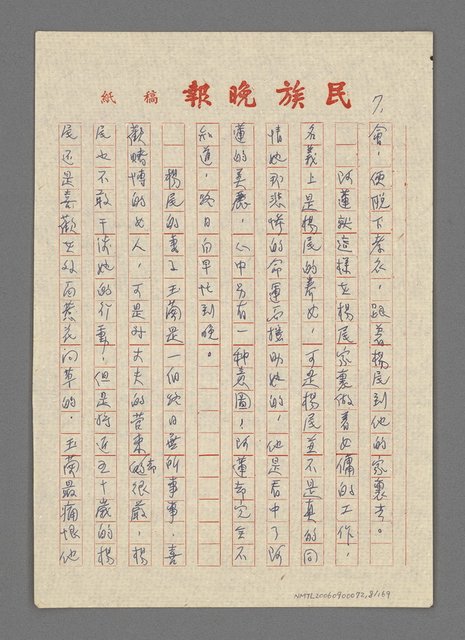 民族晚報 稿紙
7.
會，便脫下孝衣，跟著楊民到他的家裏去。
阿蓮就這樣在楊民家裏做着女傭的工作，
名義上是楊民的養女，可是楊民並不是真的同
情她那悲慘的命運而援助她的，他是看中了阿
蓮的美麗，心中另有一種意圖，阿蓮却完全不
知道，終日向早忙到晚。
楊民的妻子玉蘭是一個終日無所事事，喜
歡賭博的女人，可是对丈夫的管束却很嚴，楊
民也不敢干涉她的行動，但是將近五十歲的楊
民还是喜歡在外面惹花问草的，玉蘭最痛恨他
NMTL20060900072,8/169